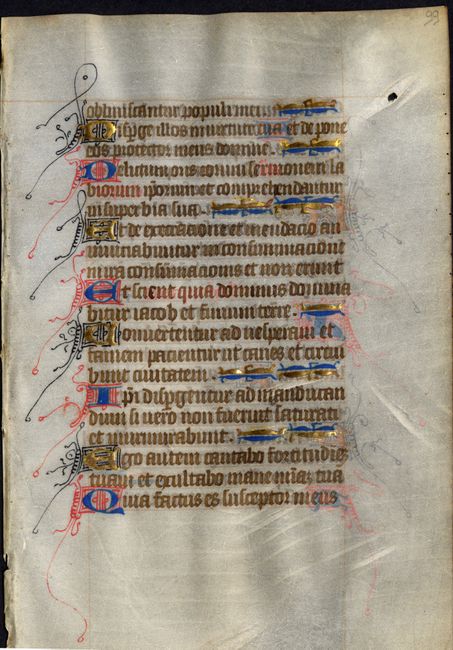 99
obliuiscantur populi mei
Disp̱ge illos in uirtute tua et depone
eos protector meus domine
Delictum oris eorum sermonem la
biorum ip̄orum et comprehendantur
in superbia sua
Et de execratione et mendacio an
nunciabuntur in consummacione
in ira consumacionis et non erunt
Et scient quia dominus domina
bitur iacob et finium terre
Conuertentur ad uesperam et
famem pacientur ut canes et circui
bunt ciuitatem
Ip̄i disp̱gentur ad manducan
dum si uero non fuerint saturati
et murmurabunt
Ego autem cantabo fortitudinē
tuam et exultabo mane mīaꝫ tuā
Quia factus es susceptor meus